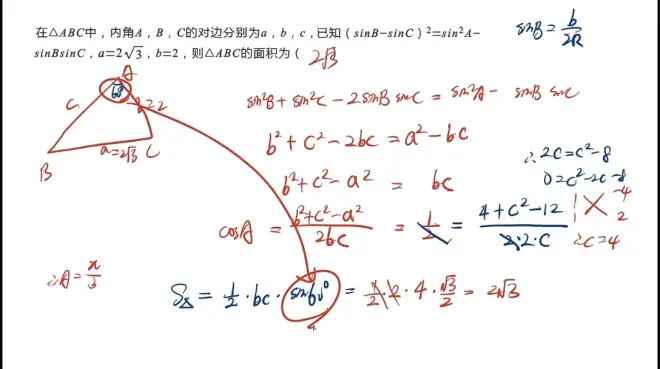 在△ABC中，内角A，B，C的对边分别为a，b，c，已知（sinB-sinC）²=sin²A-
sinBsinC，a=2√3，b=2，则△ABC的面积为（ 2√3
sinB = b/2R
A
60°
c
b=2
B
a=2√3
C
sin²B + sin²C - 2sinB sinC = sin²A - sinB sinC
b² + c² - 2bc = a² - bc
b² + c² - a² = bc
cosA = b²+c²-a²/2bc = 1/2 = 4+c²-12/2·2·c
∴2c=c²-8
0=c²-2c-8
1 -4
1 2
∴c=4
∴A=π/3
S△ = 1/2 · bc · sin60° = 1/2 · 2 · 4 · √3/2 = 2√3